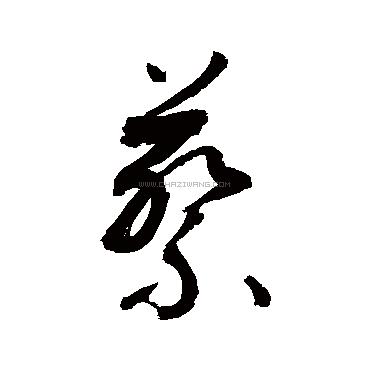 蔡
WWW.CHAZIWANG.COM